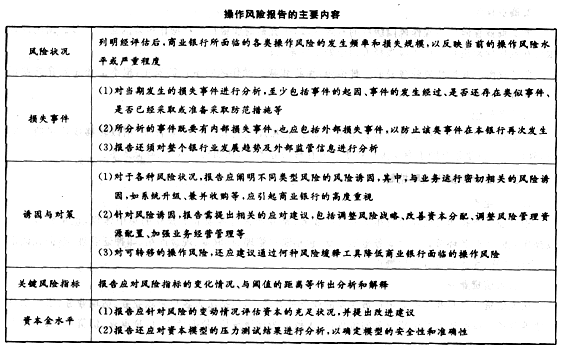 操作风险报告的主要内容
风险状况
列明经评估后,商业银行所面临的各类操作风险的发生频率和损失规模,以反映当前的操作风险水
平或严重程度
损失事件
(1)对当期发生的损失事件进行分析,至少包括事件的起因、事件的发生经过、是否还存在类似事件、
是否已经采取或准备采取防范措施等
(2)所分析的事件既要有内部损失事件,也应包括外部损失事件,以防止该类事件在本银行再次发生
(3)报告还须对整个银行业发展趋势及外部监管信息进行分析
诱因与对策
(1)对于各种风险状况,报告应阐明不同类型风险的风险诱因,其中,与业务运行密切相关的风险诱
因,如系统升级、兼并收购等,应引起商业银行的高度重视
(2)针对风险诱因,报告需提出相关的应对建议,包括调整风险战略、改善资本分配、调整风险管理资
源配置、加强业务经营管理等
(3)对可转移的操作风险,还应建议通过何种风险缓释工具降低商业银行面临的操作风险
关键风险指标
报告应对风险指标的变化情况、与阈值的距离等作出分析和解释
资本金水平
(1)报告应针对风险的变动情况评估资本的充足状况,并提出改进建议
(2)报告还应对资本模型的压力测试结果进行分析,以确定模型的安全性和准确性